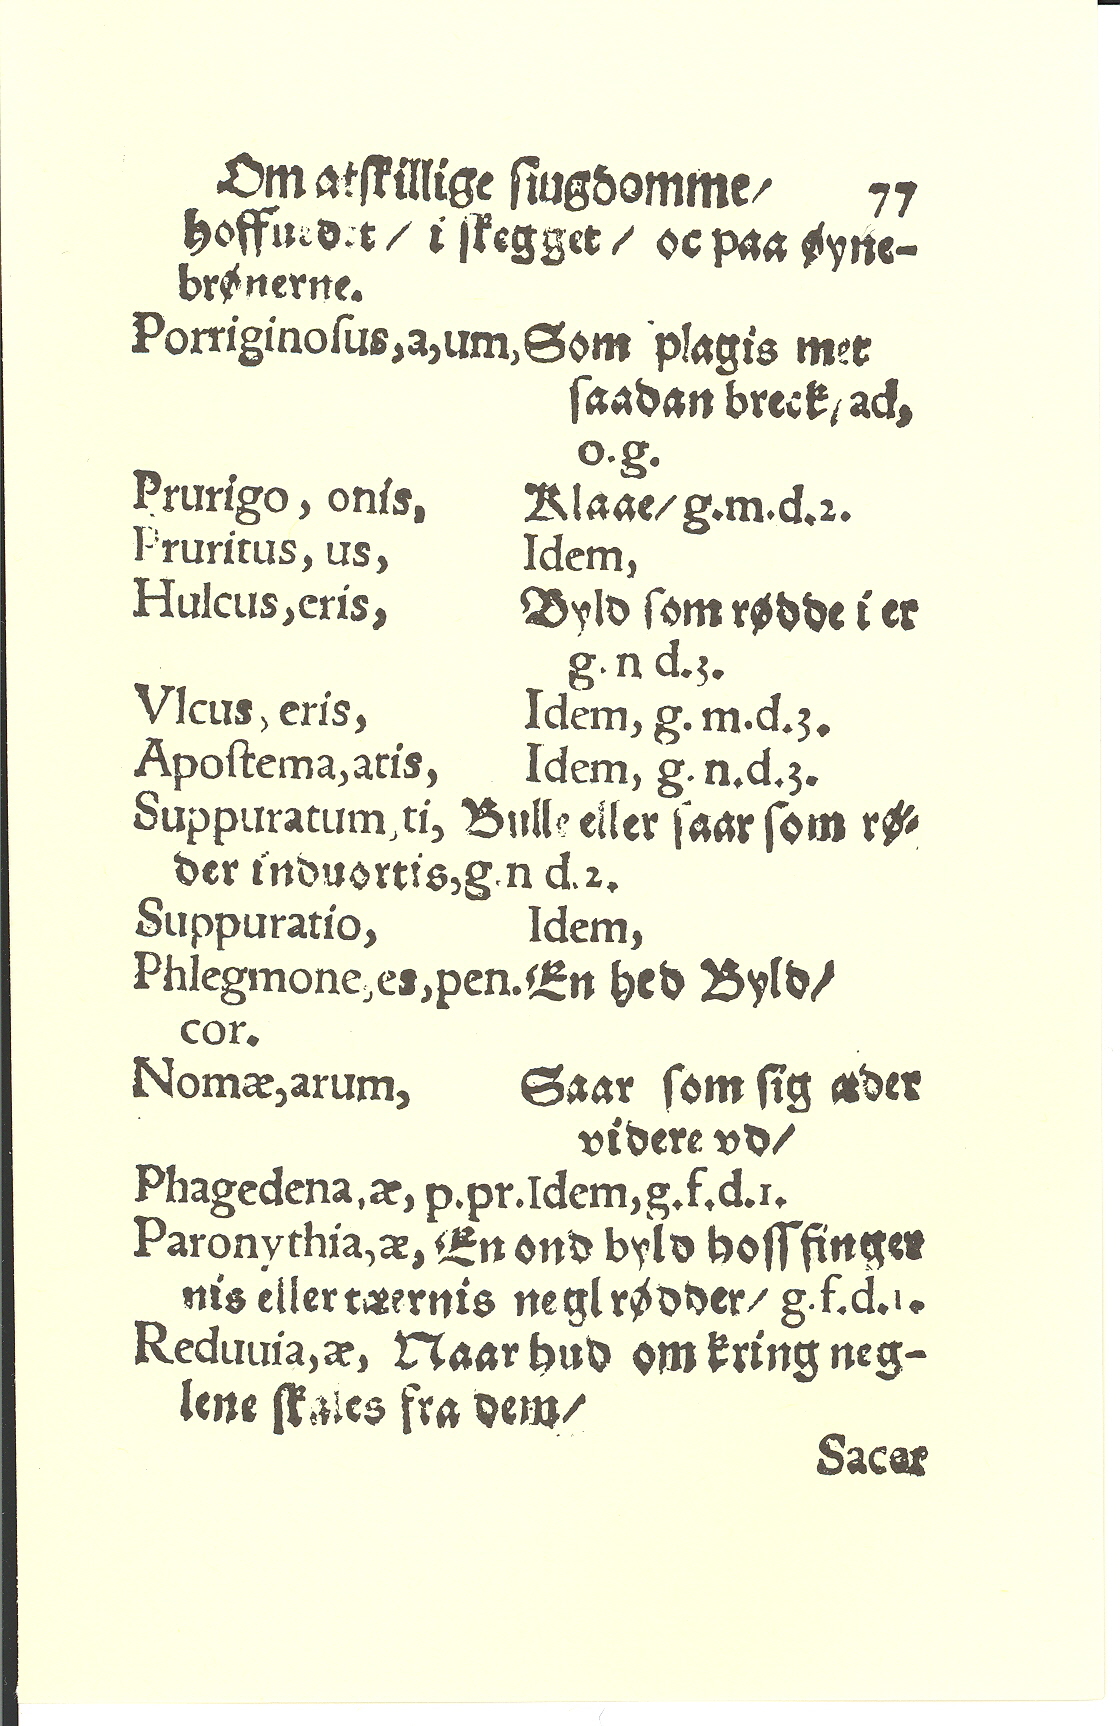 Om atſkillige ſiugdomme/ 77
hoffuedet / i ſkegget / oc paa øyne-
brønerne.
Porriginoſus,a,um, Som plagis met
ſaadan breck/ ad,
o.g.
Prurigo, onis, Klaae/ g.m.d.2.
Pruritus, us, Idem,
Hulcus,eris, Byld ſom rødde i er
g. n d.3.
Vlcus, eris, Idem, g. m.d.3.
Apoſtema,atis, Idem, g. n.d.3.
Suppuratum,ti, Bulle eller ſaar ſom rø-
der induortis,g.n d.2.
Suppuratio, Idem,
Phlegmone,es,pen. En hed Byld/
cor.
Nomæ,arum, Saar ſom ſig æder
videre vd/
Phagedena,æ, p.pr. Idem,g.f.d.1.
Paronythia,æ, En ond byld hoſſ finger
nis eller tæernis negl rødder/ g.f.d.1.
Reduuia,æ, Naar hud omkring neg-
lene ſkales fra dem/
Sacer